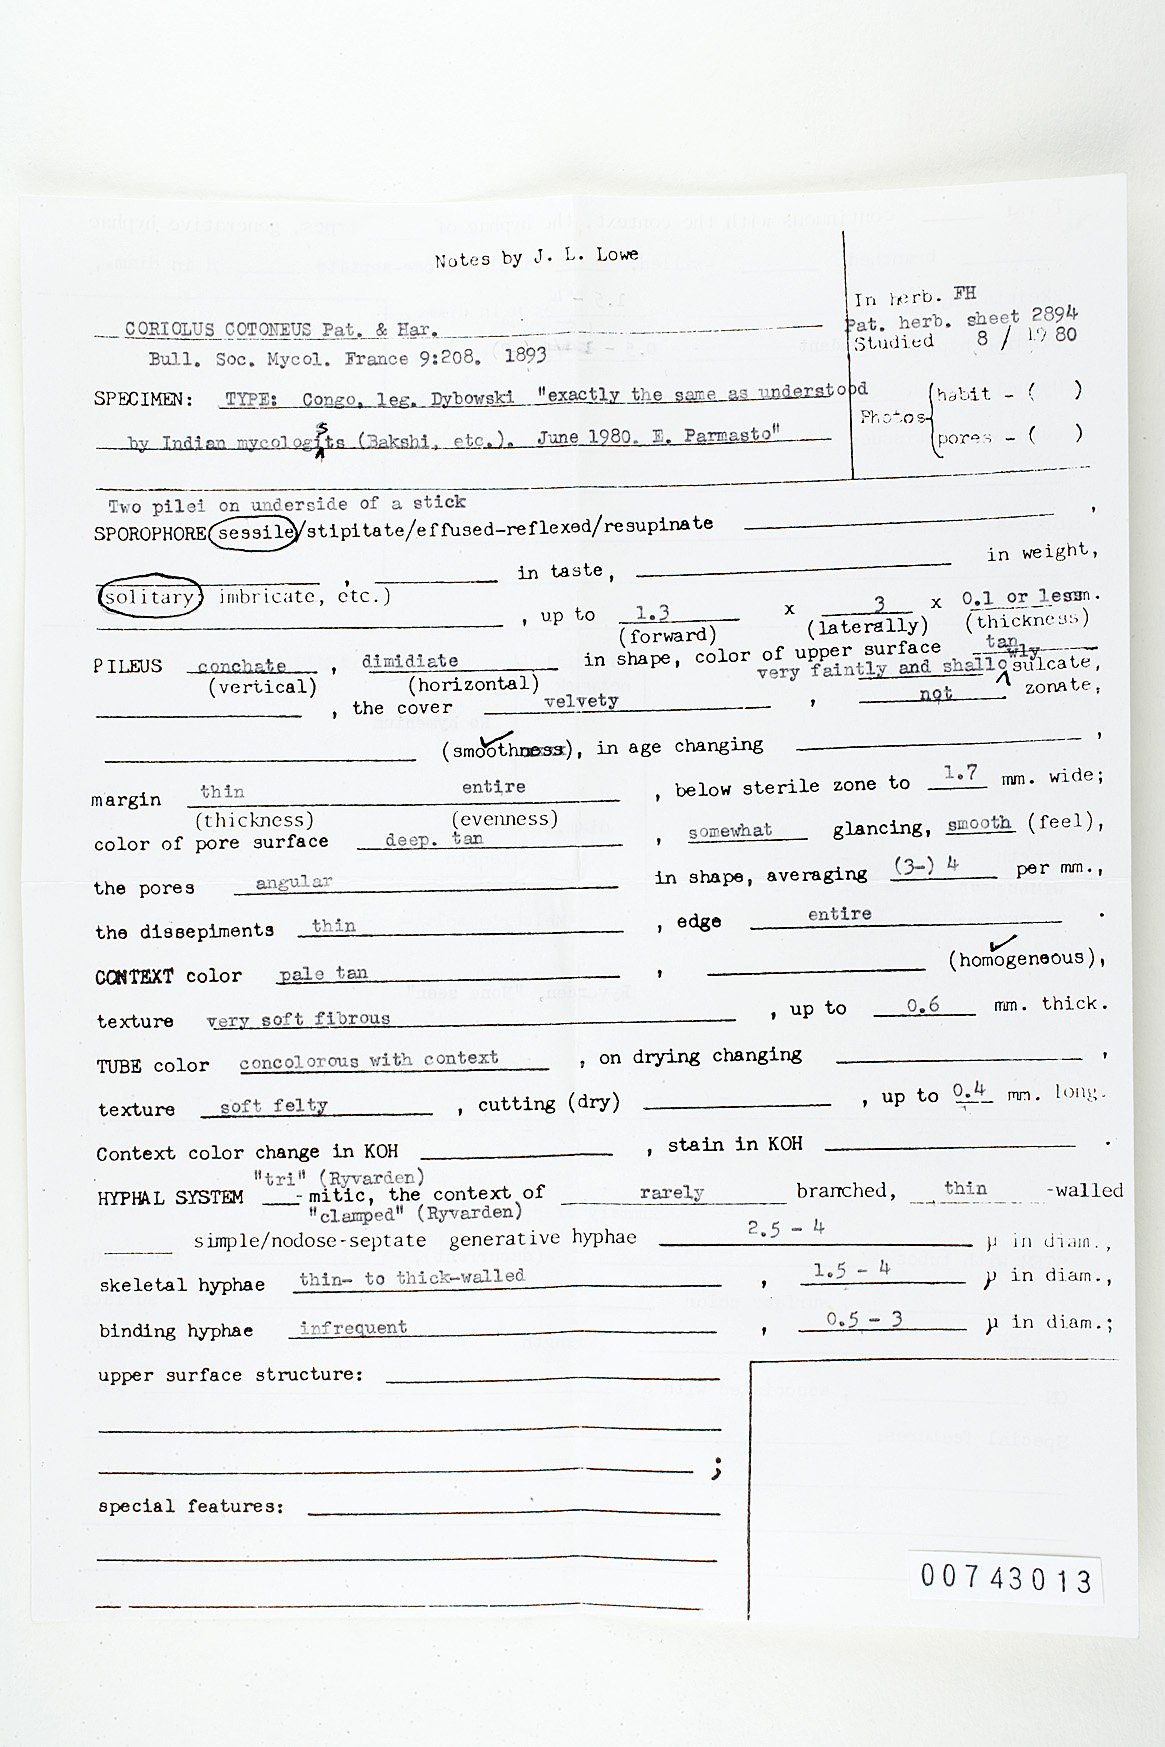 Notes by J. L. Lowe
In herb. FH
Pat. herb. sheet 2894
Studied 8 / 1980
CORIOLUS COTONEUS Pat. & Har.
Bull. Soc. Mycol. France 9:208. 1893
SPECIMEN: TYPE: Congo, leg. Dybowski "exactly the same as understood
by Indian mycologists (Bakshi, etc.). June 1980. E. Parmasto"
Photos habit - ( )
pores - ( )
Two pilei on underside of a stick
SPOROPHORE sessile/stipitate/effused-reflexed/resupinate ,
, in taste, in weight,
(solitary, imbricate, etc.)
, up to 1.3 x 3 x 0.1 or less m.
(forward) (laterally) (thickness)
PILEUS conchate , dimidiate in shape, color of upper surface tan
(vertical) (horizontal) very faintly and shallowly sulcate,
, the cover velvety , not zonate,
(smoothness), in age changing ,
margin thin entire , below sterile zone to 1.7 mm. wide;
(thickness) (evenness)
color of pore surface deep. tan , somewhat glancing, smooth (feel),
the pores angular in shape, averaging (3-) 4 per mm.,
the dissepiments thin , edge entire .
CONTEXT color pale tan , (homogeneous),
texture very soft fibrous , up to 0.6 mm. thick.
TUBE color concolorous with context , on drying changing ,
texture soft felty , cutting (dry) , up to 0.4 mm. long.
Context color change in KOH , stain in KOH .
"tri" (Ryvarden)
HYPHAL SYSTEM - mitic, the context of rarely branched, thin -walled
"clamped" (Ryvarden)
simple/nodose-septate generative hyphae 2.5 - 4 µ in diam.,
skeletal hyphae thin- to thick-walled , 1.5 - 4 µ in diam.,
binding hyphae infrequent , 0.5 - 3 µ in diam.;
upper surface structure:
;
special features:
00743013